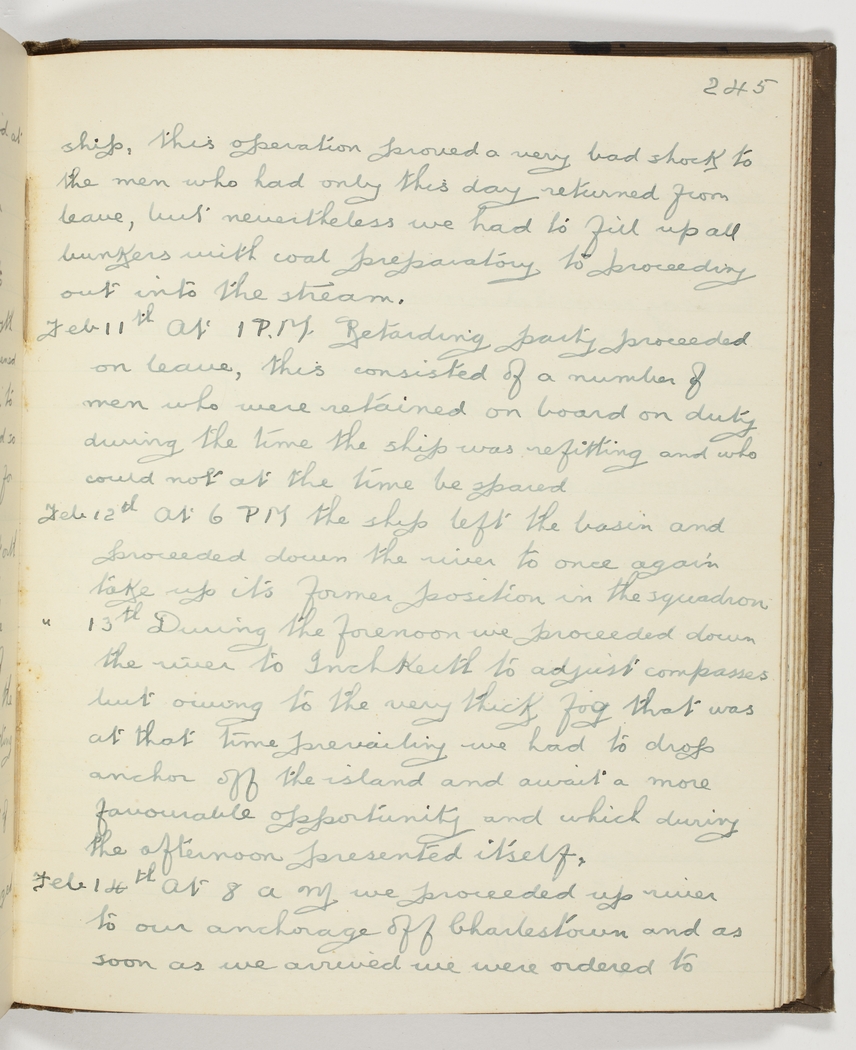 245
ship, this operation proved a very bad shock to
the men who had only this day returned from
leave, but nevertheless we had to fill up all
bunkers with coal preparatory to proceeding
out into the stream.
Feb 11th At 1 P.M. Retarding party proceeded
on leave, this consisted of a number of
men who were retained on board on duty
during the time the ship was refitting and who
could not at the time be spared
Feb 12th At 6 PM the ship left the basin and
proceeded down the river to once again
take up its former position in the squadron
" 13th During the forenoon we proceeded down
the river to Inch Keith to adjust compasses
but oiwng to the very thick fog that was
at that time prevailing we had to drop
anchor off the island and await a more
favourable opportunity and which during
the afternoon presented itself.
Feb 14th At 8 a m we proceeded up river
to our anchorage off Charlestown and as
soon as we arrived we were ordered to